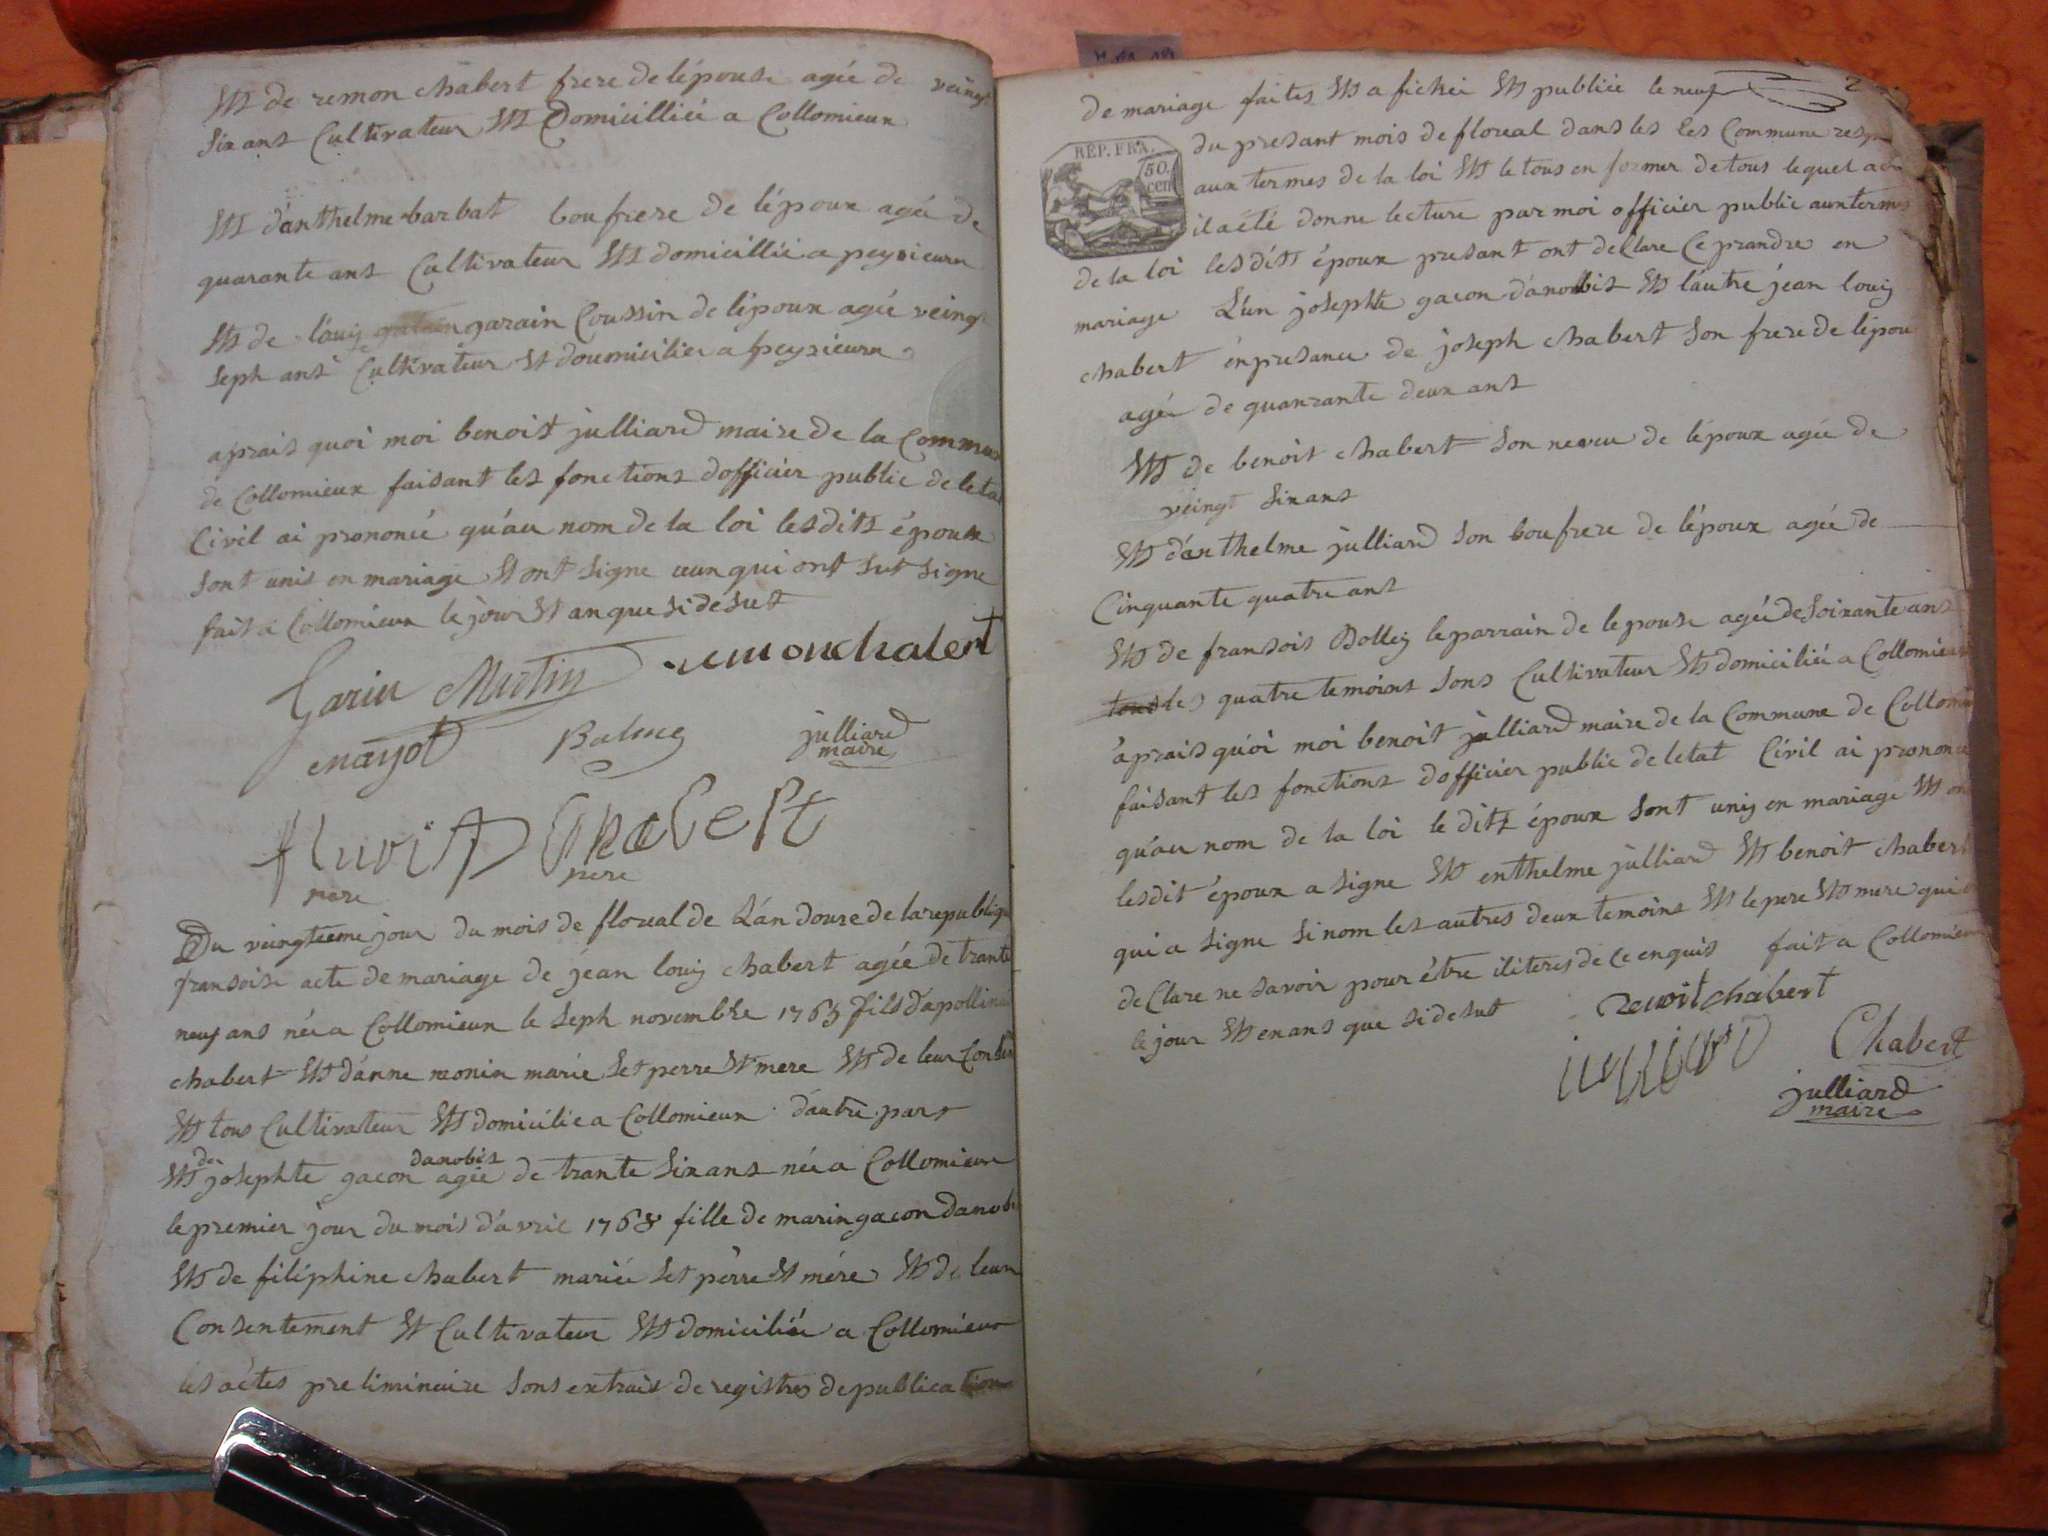 Et de remon chabert frere de lépouse agée de veingt
sixans Cultivateur Et Domicilliéé a Collomieux
Et d'anthelme barbat boufrere de lépoux agée de
quarante ans Cultivateur Et domicilliéé a peyzieux
Et de louiy garain Coussin de lépoux agée veingt
seph ans Cultivateur Et doumicilier a peyzieux
aprais quoi moi benoist julliard maire de la Commune
de Collomieux faisant les fonctions dofficier public de leta
Civil ai prononcé qu'au nom de la loi lesdits époux
sont unis en mariage Et ont signe ceux qui ont sut signe
fait a Collomieux le jour Et an que si desut
remonchabert
Garin Martin
mayot
julliard
maire
chabert
pere pere
Du veingtieme jour du mois de floreal de L'án douze de la republiq
fransoise acte de mariage de jean louiy chabert agée de trante
neuf ans néé a Collomieux le seph novembre 1765 fils d'apollinai
chabert Et dánne monin marié Set perre Et mere Et de leur Consen
Et tous Cultivateur Et domicilie a Collomieux d'autre part
de danobis
Et josephte gacon agée de trante sixans néé a Collomieux
le premier jour du mois d'avric 1768 fille de marin gacon danobi
Et de filéphine chabert mariée Set pérre Et mére Et de leur
Consentement Et Cultivateur Et domiciliée a Collomieux
les áctes preliminaire sons extrais de registres de publication
2
de mariage faites Et afichéi Et publiée le neuf
REP. FRA.
50
cen
du presant mois de floreal dans les les Commune resp
aux termes de la loi Et le tous en former de tous lequel acte
il a été donne lecture par moi officier public aux termes
de la loi lesdits époux presant ont declare Ce prandre en
mariage L'un josephte gacon danobis Et láutre jean louiy
chabert enpresance de joseph chabert son frere de lépou
agée de quanrante deux ans
Et de benoit chabert son neveu de lépoux agée de
veingt sixans
Et d'anthelme julliard son boufrere de lépoux agée de
Cinquante quatre ans
Et de fransois Bolley le parrain de lepouse agée de soixante ans
tous les quatre temoins sons Cultivateur Et domiciliéé a Collomieux
áprais quoi moi benoit julliard maire de la Commune de Collomi
faisant les fonctions dofficier public de letat Civil ai prononcé
qu'au nom de la loi le dits époux sont uniy en mariage Et on
lesdit époux a signe Et enthelme julliard Et benoit chabert
qui a signe sinom les autres deux temoins Et le pere Et mere qui
de Clare ne savoir pour étre iliteres de ce enquis fait a Collomieux
le jour Et enans que si desut
benoitchabert
julliard
Chabert
julliard
maire